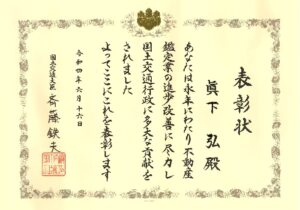 表彰状
眞下 弘 殿
あなたは永年にわたり不動産
鑑定業の進歩改善に尽力し
国土交通行政に多大な貢献を
されました
よってここにこれを表彰します
令和四年六月十六日
国土交通大臣 斉藤鉄夫